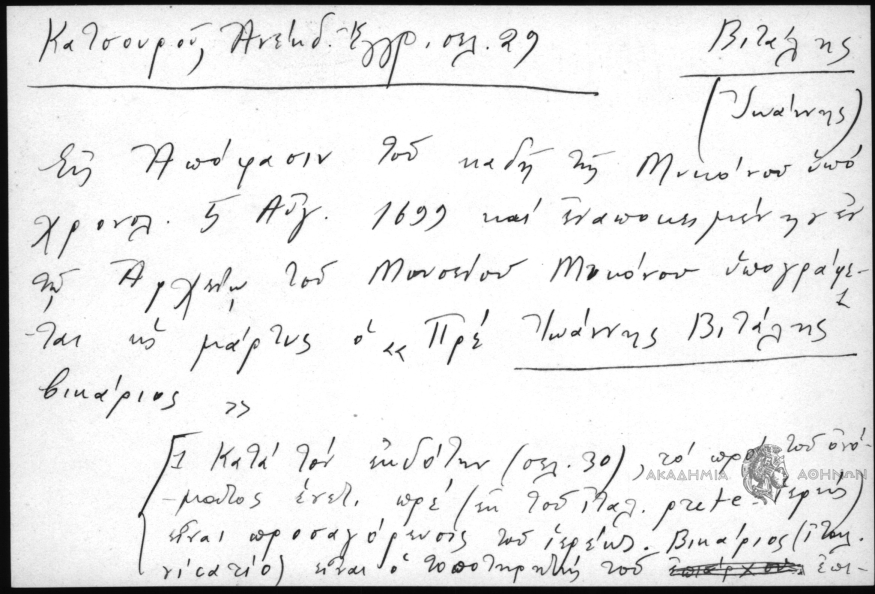 Κατσουροῦ, Ἀνέκδ. Ἔγγρ. σελ. 29
Βιτάλης
(Ἰωάννης)
Εἰς Ἀπόφασιν τοῦ καδῆ τῆς Μυκόνου ὑπό
χρονολ. 5 Αὐγ. 1699 καί ἐναποκειμένην ἐν
τῷ Ἀρχείῳ τοῦ Μουσείου Μυκόνου ὑπογράφε-
ται ὡς μάρτυς ὁ «Πρέ Ἰωάννης Βιτάλης 1
βικάριος»
[1 Κατά τόν ἐκδότην (σελ. 30), τό πρό τοῦ ὀνό-
-ματος ἑνετ. πρέ (ἐκ τοῦ ἰταλ. prete - ἱερεύς)
εἶναι προσαγόρευσις τοῦ ἱερέως. Βικάριος (ἰταλ.
vicario) εἶναι ὁ τοποτηρητής τοῦ ἐπι-
ΑΚΑΔΗΜΙΑ ΑΘΗΝΩΝ